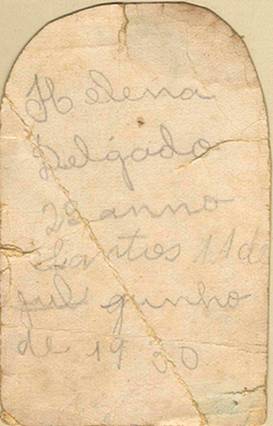 Helena
Delgado
anno
Santos 11 de
junho
de 19